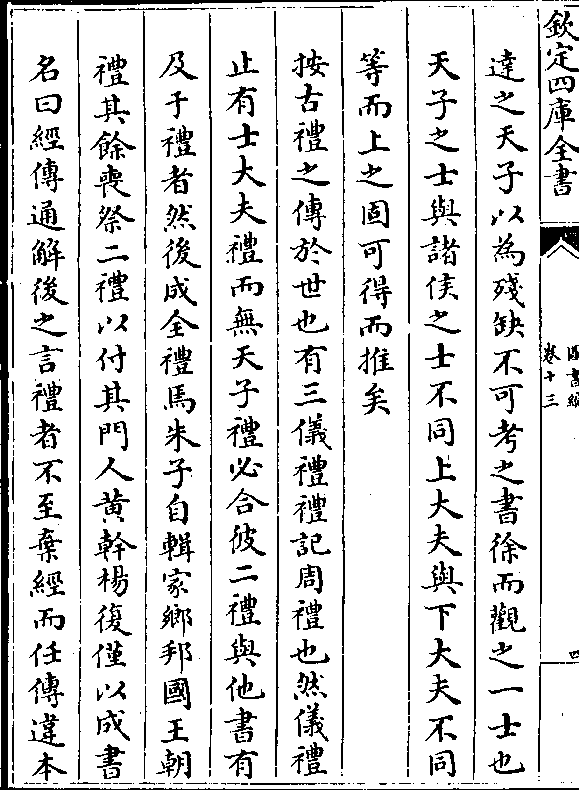 欽定四庫全書
卷十三
四
達之天子以為殘缺不可考之書徐而觀之一士也
天子之士與諸侯之士不同上大夫與下大夫不同
等而上之固可得而推矣
按古禮之傳於世也有三儀禮禮記周禮也然儀禮
止有士大夫禮而無天子禮必合彼二禮與他書有
及于禮者然後成全禮焉朱子自輯家鄉邦國王朝
禮其餘喪祭二禮以付其門人黄幹楊復僅以成書
名曰經傳通解後之言禮者不至棄經而任傳違本